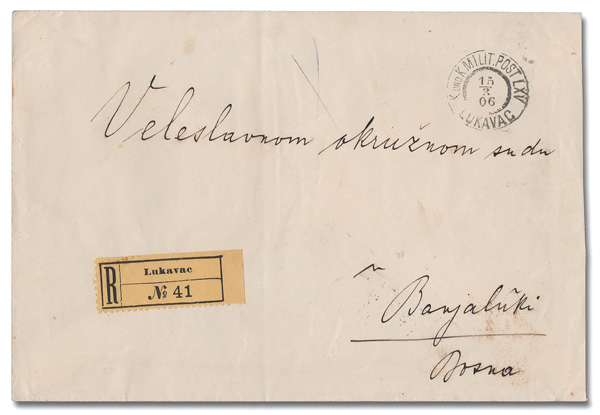 K. UND K. MILIT. POST LXV
15
3
06
LUKAVAC
Veleslavnom okružnom sudu
R
Lukavac
№ 41
u
Banjalučki
Bosna